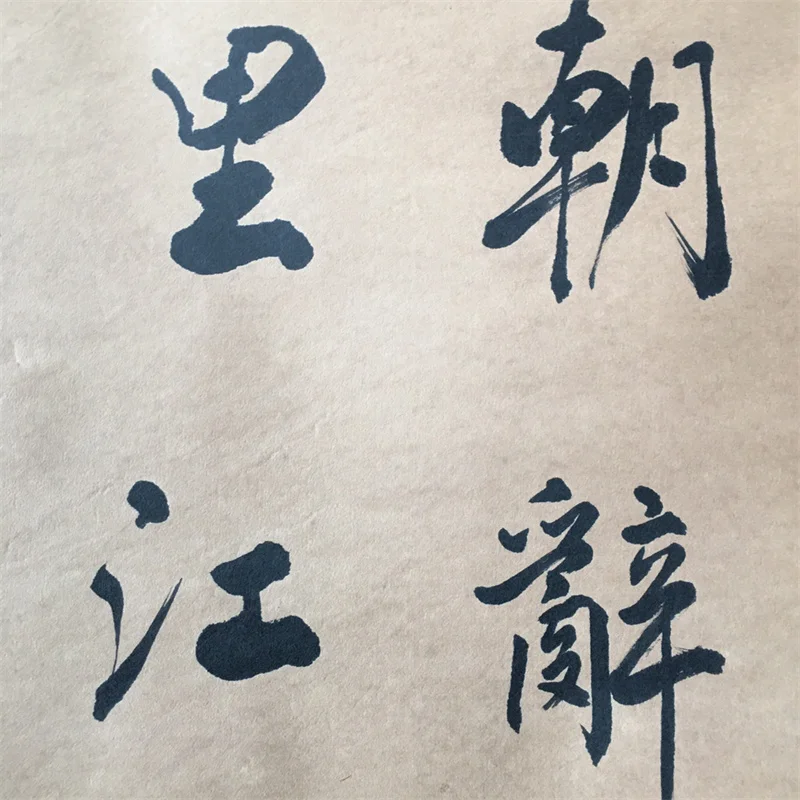 朝辭
里江